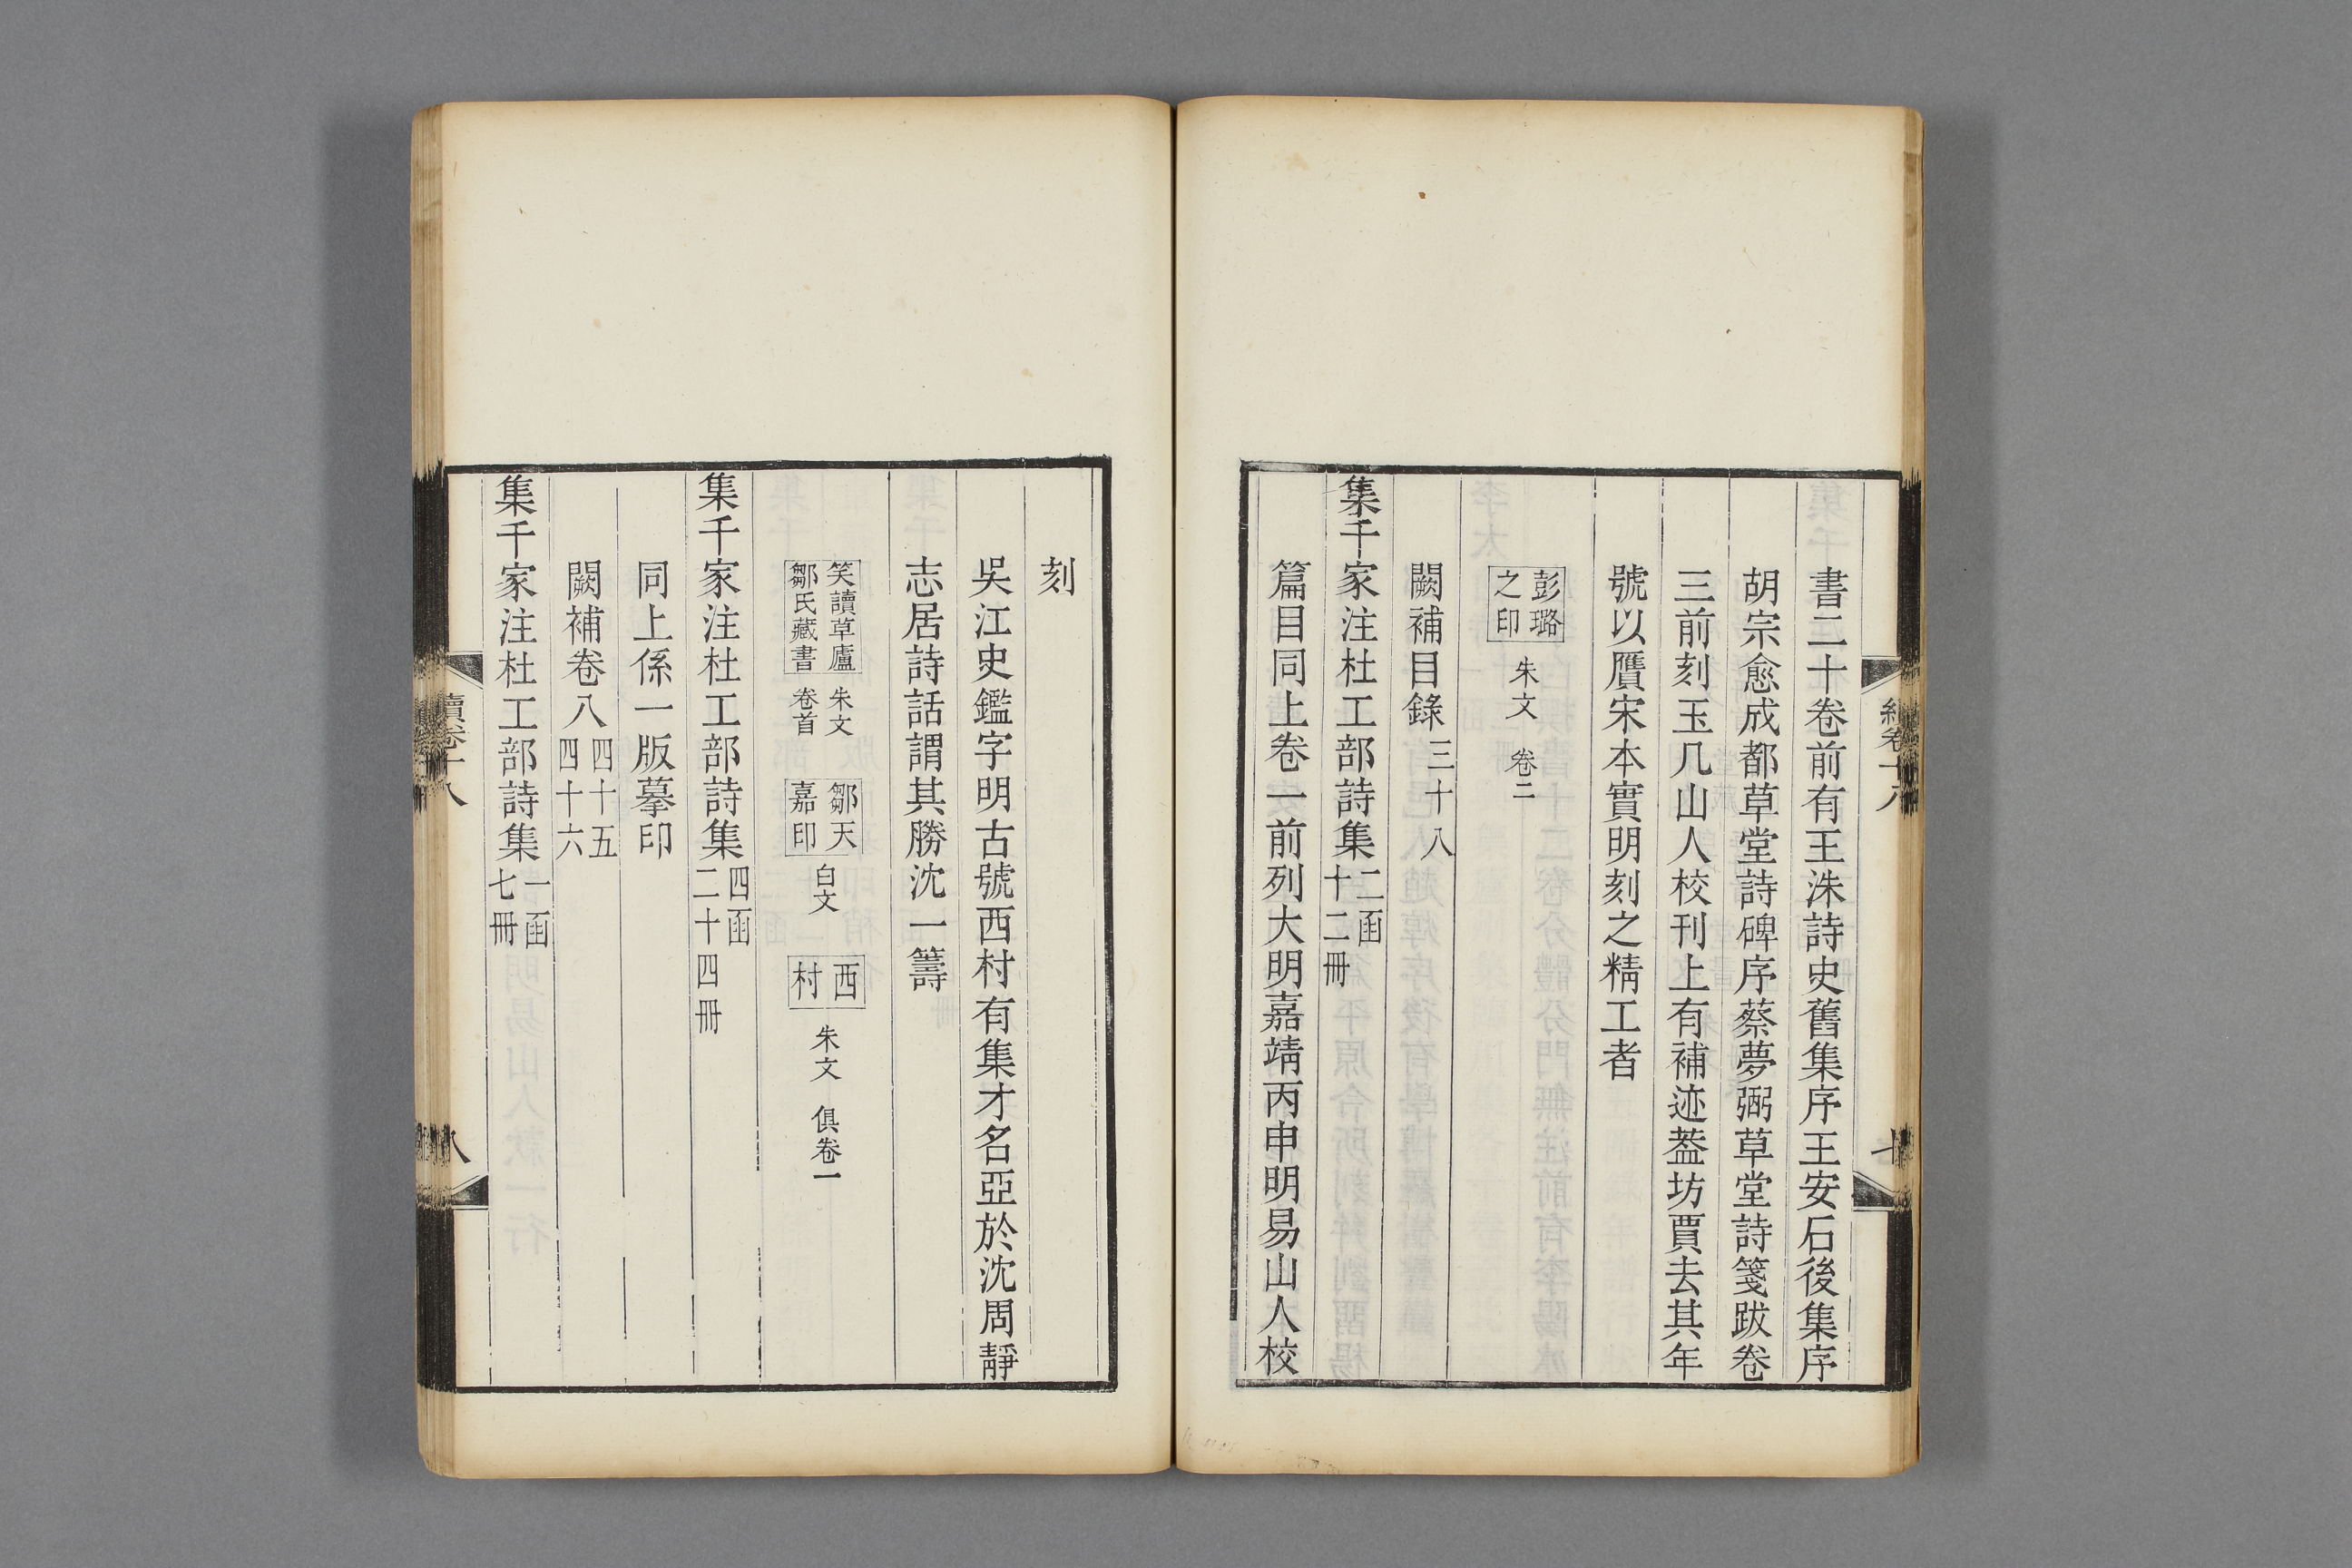 書二十卷前有王洙詩史舊集序王安石後集序
胡宗愈成都草堂詩碑序蔡夢弼草堂詩箋跋卷
三前刻玉几山人校刊上有補迹葢坊賈去其年
號以贋宋本實明刻之精工者
彭璐之印 朱文 卷二
闕補目錄 三十八
集千家注杜工部詩集 二函 十二冊
篇目同上卷一前列大明嘉靖丙申明易山人校
刻
吳江史鑑字明古號西村有集才名亞於沈周靜
志居詩話謂其勝沈一籌
笑讀草廬鄒氏藏書 朱文 卷首 鄒天嘉印 白文 西村 朱文 俱卷一
集千家注杜工部詩集 四函 二十四冊
同上係一版摹印
闕補卷八 四十五 四十六
集千家注杜工部詩集 一函 七冊
續卷十八
八